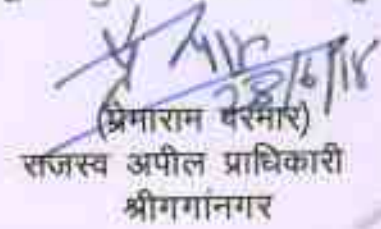 28/6/18
(प्रेमाराम परमार)
राजस्व अपील प्राधिकारी
श्रीगगांनगर